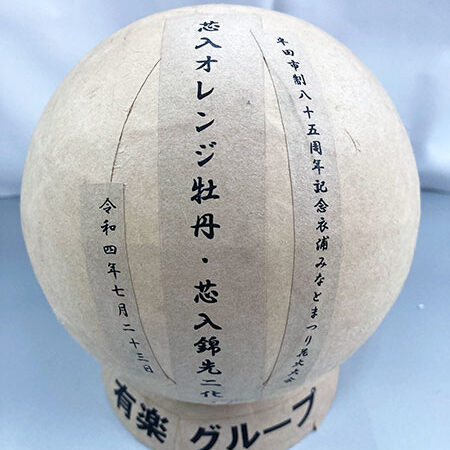 半田市制八十五周年記念衣浦みなとまつり花火大会
芯入オレンジ牡丹・芯入錦先二化
令和四年七月二十三日
有楽グループ